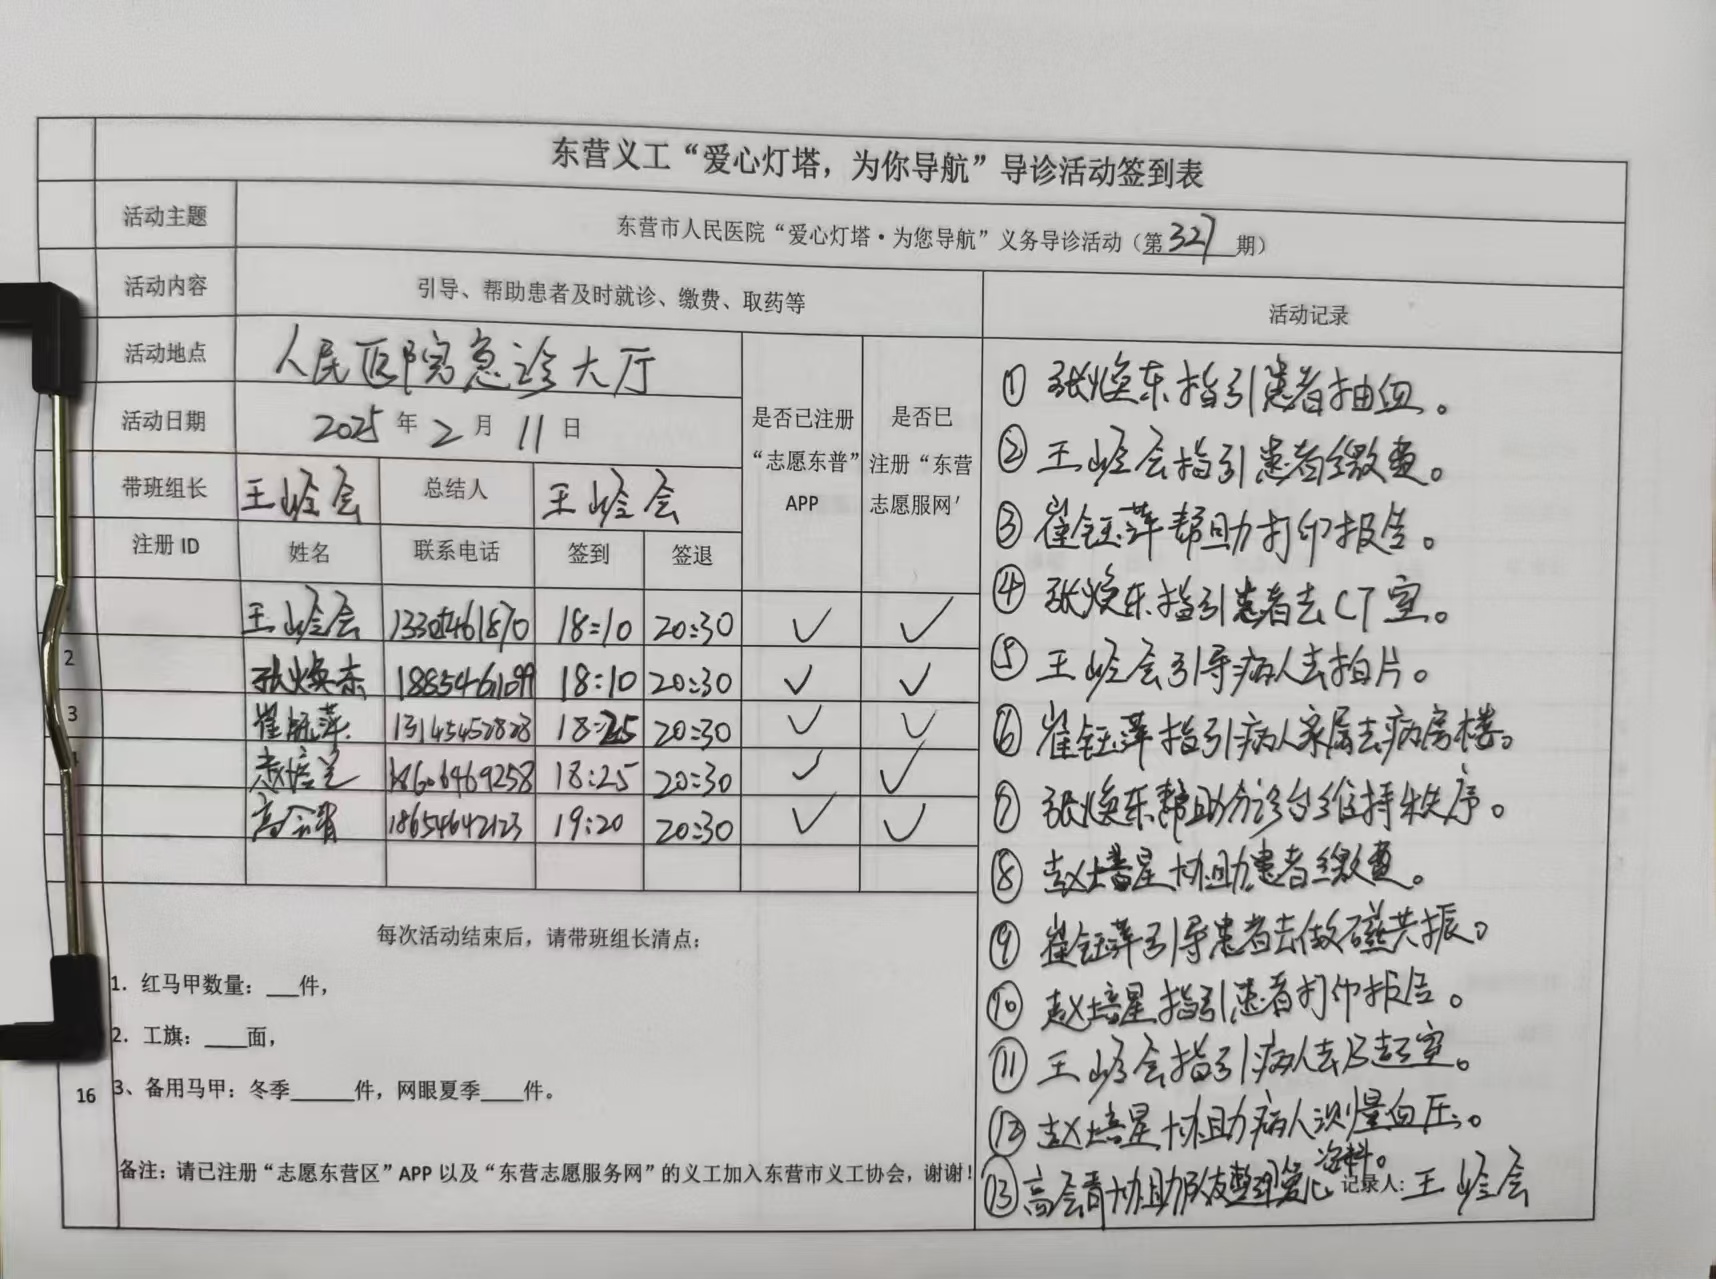 东营义工“爱心灯塔，为你导航”导诊活动签到表
活动主题 东营市人民医院“爱心灯塔·为您导航”义务导诊活动（第327期）
活动内容 引导、帮助患者及时就诊、缴费、取药等 活动记录
活动地点 人民医院急诊大厅
活动日期 2025年2月11日
是否已注册“志愿东普”APP
是否已注册“东营志愿服网'
带班组长 王峪会 总结人 王峪会
注册 ID 姓名 联系电话 签到 签退
王峪会 18:10 20:30 ✓ ✓
2 张焕东 18854661099 18:10 20:30 ✓ ✓
3 崔钰萍 18:25 20:30 ✓ ✓
赵培星 18606469258 18:25 20:30 ✓ ✓
高会晋 18654642123 19:20 20:30 ✓ ✓
每次活动结束后，请带班组长清点：
1．红马甲数量：___件，
2．工旗：____面，
16 3、备用马甲：冬季______件，网眼夏季____件。
备注：请已注册“志愿东营区”APP 以及“东营志愿服务网”的义工加入东营市义工协会，谢谢！
① 张焕东指引患者抽血。
② 王峪会指引患者缴费。
③ 崔钰萍帮助打印报告。
④ 张焕东指引患者去CT室。
⑤ 王峪会引导病人去拍片。
⑥ 崔钰萍指引病人家属去病房楼。
⑦ 张焕东帮助分诊台维持秩序。
⑧ 赵培星协助患者缴费。
⑨ 崔钰萍引导患者去做磁共振。
⑩ 赵培星指引患者打印报告。
⑪ 王峪会指引病人去B超室。
⑫ 赵培星协助病人测量血压。
⑬ 高会晋协助队友整理爱心资料。
记录人：王峪会